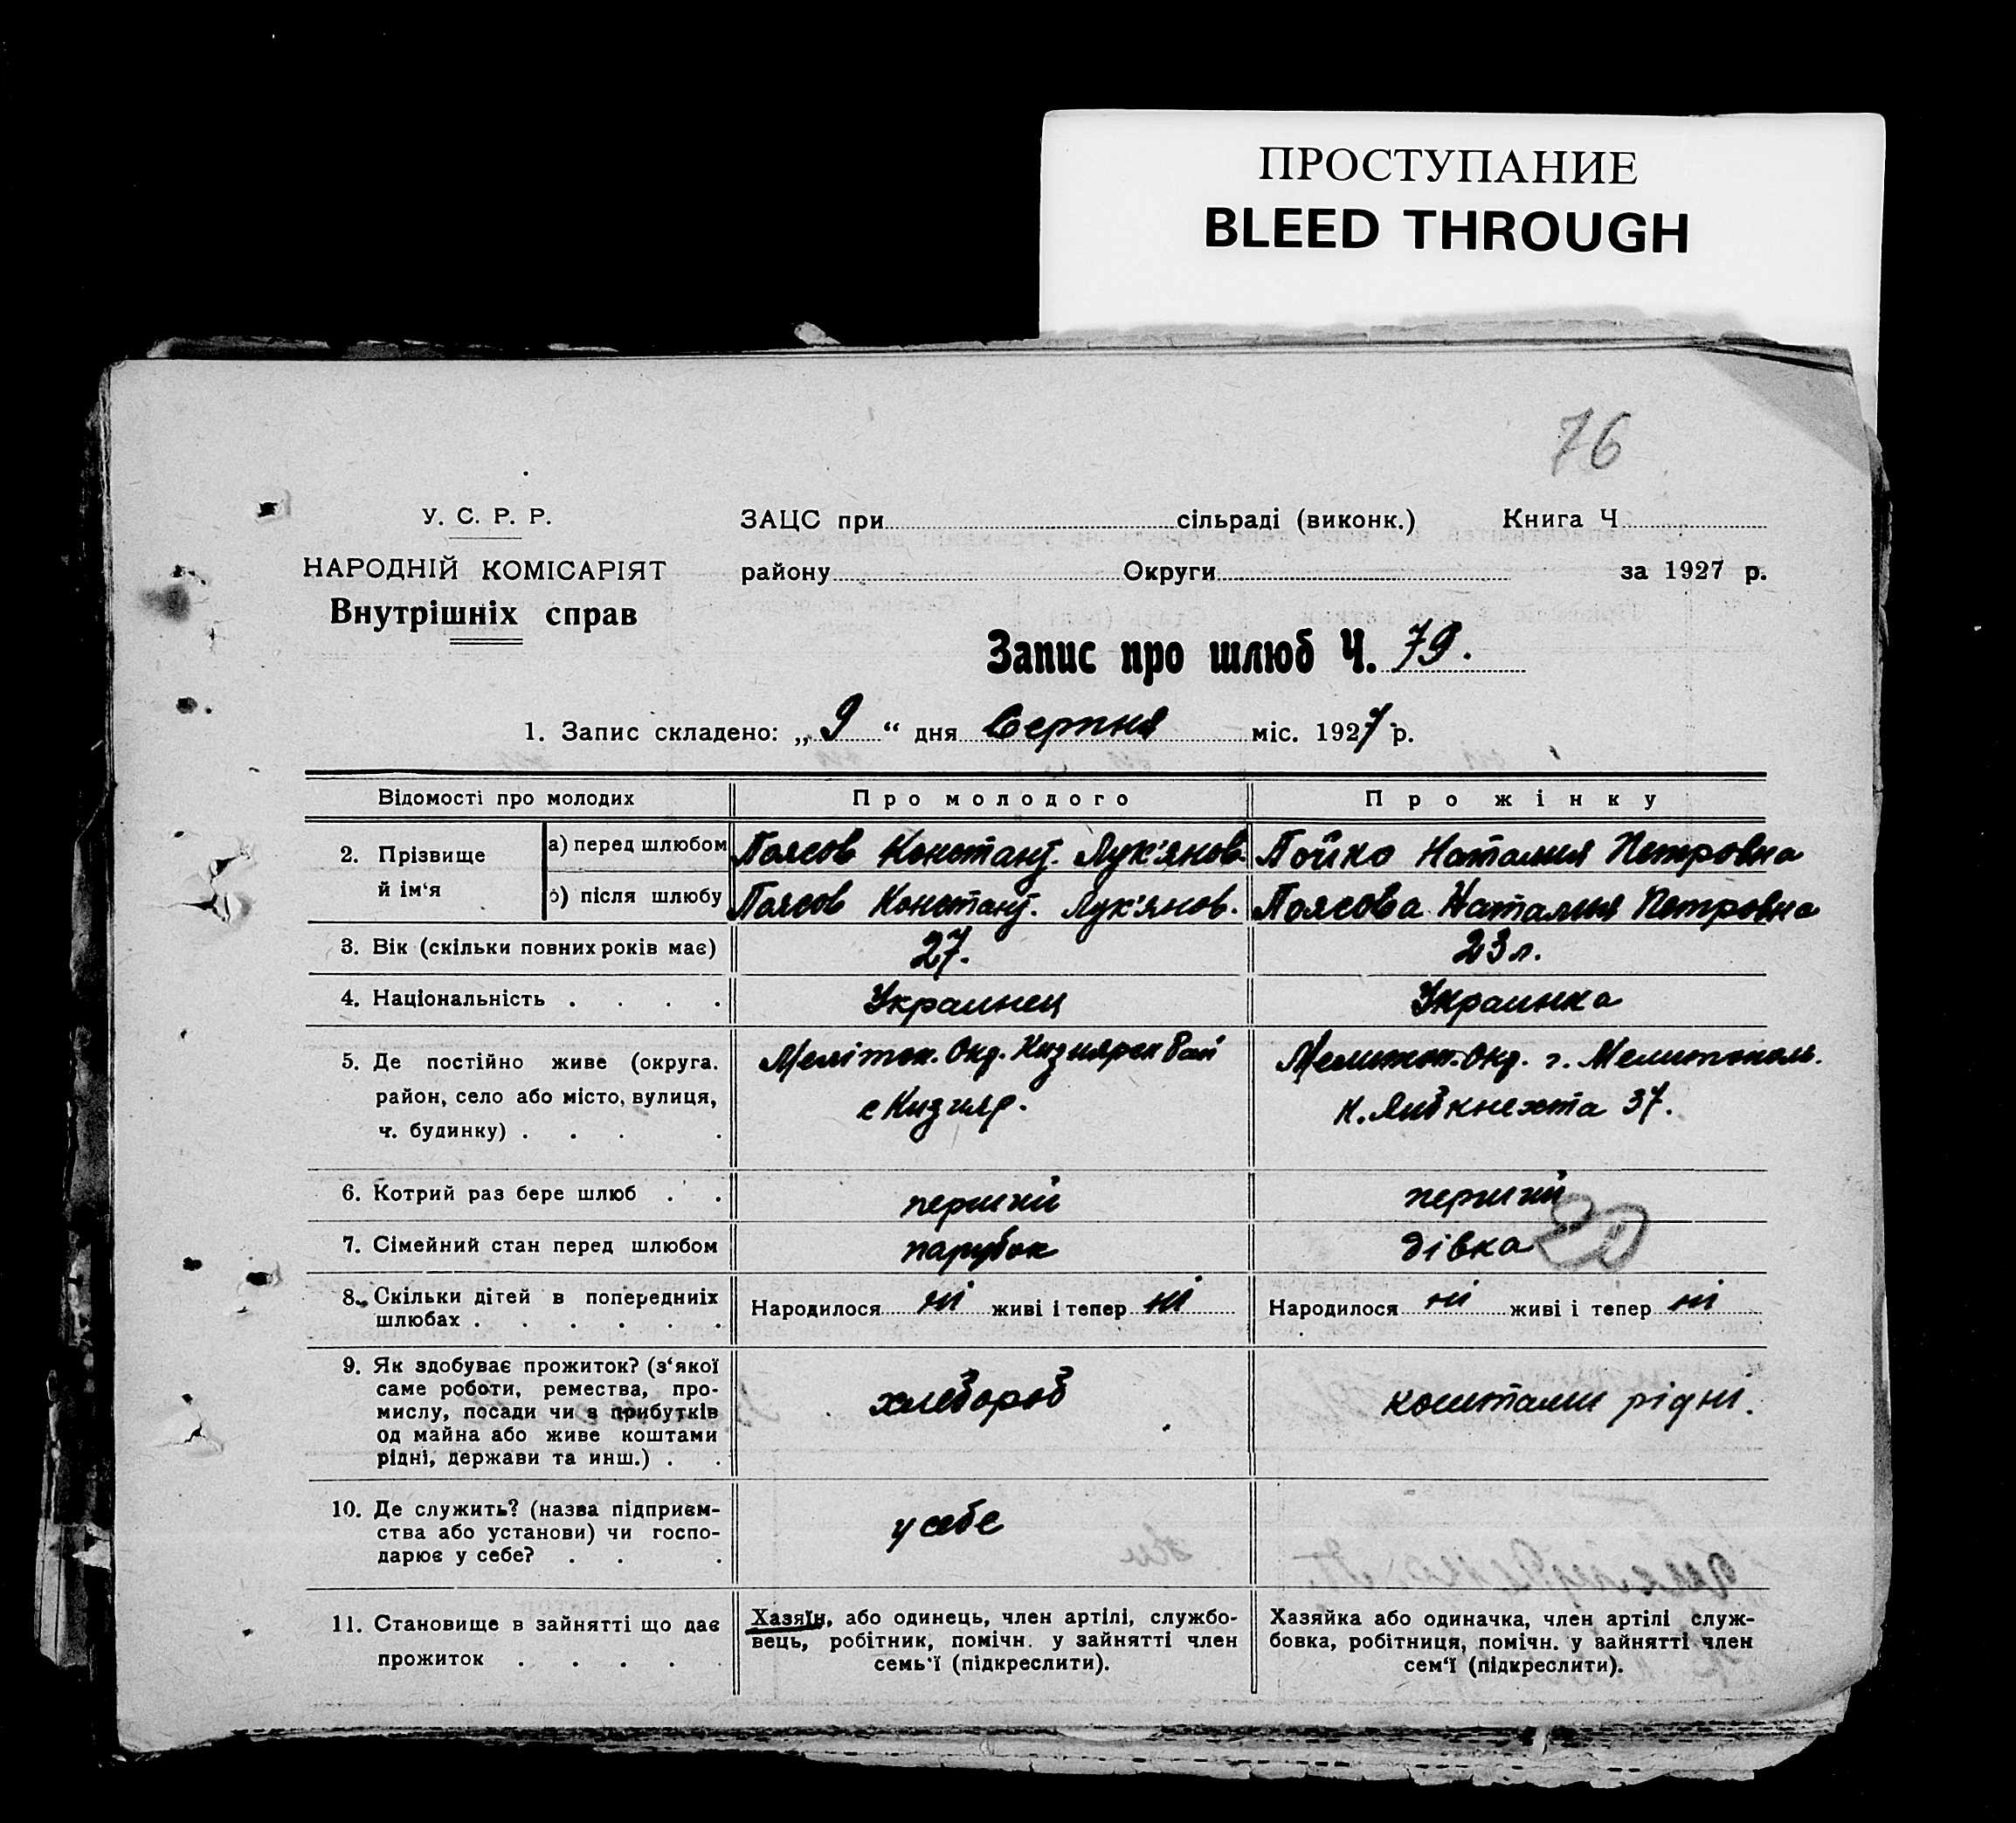 ПРОСТУПАНИЕ
BLEED THROUGH
76
У. С. Р. Р.
НАРОДНІЙ КОМІСАРІЯТ
Внутрішніх справ
ЗАЦС при сільраді (виконк.) Книга Ч
району Округи за 1927 р.
Запис про шлюб Ч. 79.
1. Запис складено: „9“ дня Серпня міс. 1927 р.
Відомості про молодих Про молодого Про жінку
2. Прізвище й ім‘я
а) перед шлюбом Поясов Констант. Лук'янов. Бойко Наталия Петровна
б) після шлюбу Поясов Констант. Лук'янов. Поясова Наталия Петровна
3. Вік (скільки повних років має) 27. 23 л.
4. Національність Украинец Украинка
5. Де постійно живе (округа. Меліток. Окр. Кизиярск Рай Мелитоп. Окр. г. Мелитополь.
район, село або місто, вулиця, с Кизияр. К. Либкнехта 37.
ч. будинку)
6. Котрий раз бере шлюб перший перший
7. Сімейний стан перед шлюбом парубок дівка
8. Скільки дітей в попередниіх Народилося ні живі і тепер ні Народилося ні живі і тепер ні
шлюбах
9. Як здобуває прожиток? (з‘якої
саме роботи, ремества, про-
мислу, посади чи з прибутків хлебороб коштами рідні.
од майна або живе коштами
рідні, держави та инш.)
10. Де служить? (назва підприєм-
ства або установи) чи госпо- у себе
дарює у себе?
11. Становище в зайнятті що дає
прожиток
Хазяїн, або одинець, член артілі, службо-
вець, робітник, помічн. у зайнятті член
семь‘ї (підкреслити).
Хазяйка або одиначка, член артілі служ-
бовка, робітниця, помічн. у зайнятті член
сем‘ї (підкреслити).